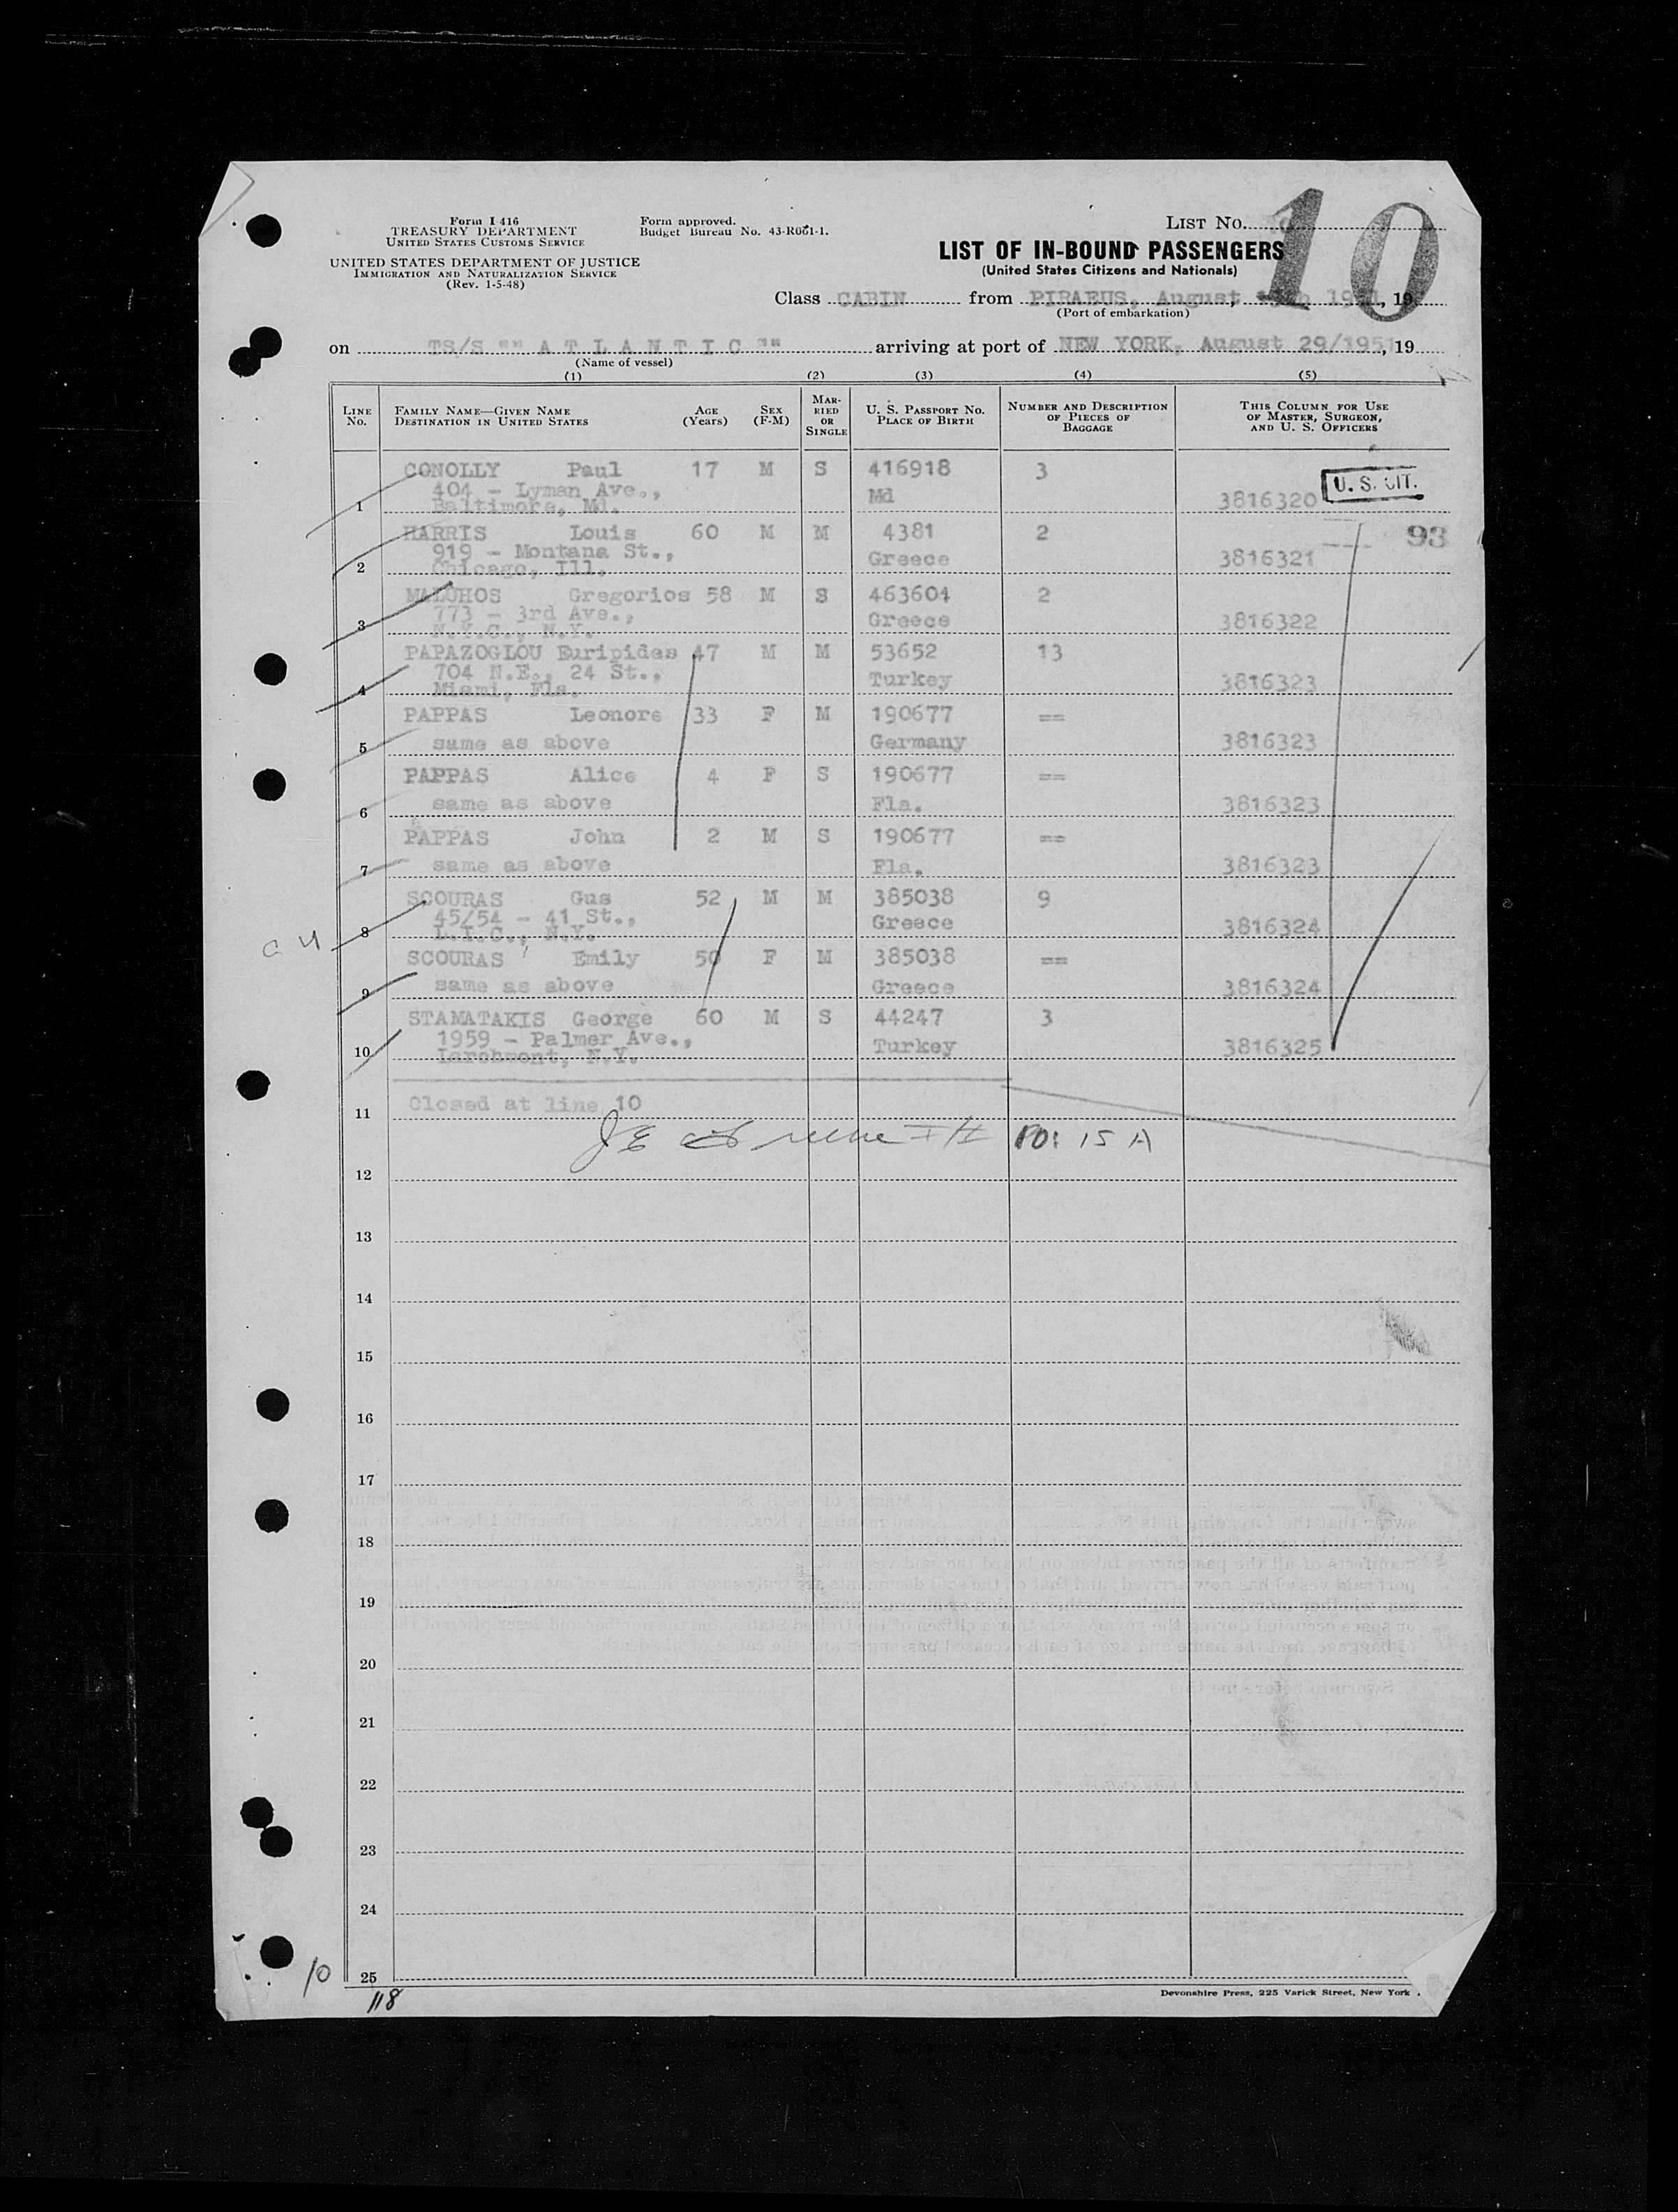 Form I 416
TREASURY DEPARTMENT
UNITED STATES CUSTOMS SERVICE
UNITED STATES DEPARTMENT OF JUSTICE
IMMIGRATION AND NATURALIZATION SERVICE
(Rev. 1-5-48)
Form approved.
Budget Bureau No. 43-R061-1.
LIST NO. 10
LIST OF IN-BOUND PASSENGERS
(United States Citizens and Nationals)
Class CABIN from PIRAEUS, August 19
(Port of embarkation)
on TS/S "" A T L A N T I C "" arriving at port of NEW YORK, August 29/1951, 19
(Name of vessel)
(1) (2) (3) (4) (5)
LINE NO. FAMILY NAME—GIVEN NAME DESTINATION IN UNITED STATES AGE (Years) SEX (F-M) MARRIED OR SINGLE U. S. PASSPORT NO. PLACE OF BIRTH NUMBER AND DESCRIPTION OF PIECES OF BAGGAGE THIS COLUMN FOR USE OF MASTER, SURGEON, AND U. S. OFFICERS
CONOLLY Paul 17 M S 416918 3 U. S. CIT.
404 - Lyman Ave., Md 3816320
1 Baltimore, Md.
HARRIS Louis 60 M M 4381 2 93
919 - Montana St., Greece 3816321
2 Chicago, Ill.
MALUHOS Gregorios 58 M S 463604 2
773 - 3rd Ave., Greece 3816322
3 N.Y.C., N.Y.
PAPAZOGLOU Euripides 47 M M 53652 13
704 N.E., 24 St., Turkey 3816323
4 Miami, Fla.
PAPPAS Leonore 33 F M 190677 ==
5 same as above Germany 3816323
PAPPAS Alice 4 F S 190677 ==
6 same as above Fla. 3816323
PAPPAS John 2 M S 190677 ==
7 same as above Fla. 3816323
SCOURAS Gus 52 M M 385038 9
45/54 - 41 St., Greece 3816324
8 L.I.C., N.Y.
SCOURAS Emily 50 F M 385038 ==
9 same as above Greece 3816324
STAMATAKIS George 60 M S 44247 3
1959 - Palmer Ave., Turkey 3816325
10 Larchmont, N.Y.
11 Closed at line 10
15 A
12
13
14
15
16
17
18
19
20
21
22
23
24
25
10
118
Devonshire Press, 225 Varick Street, New York